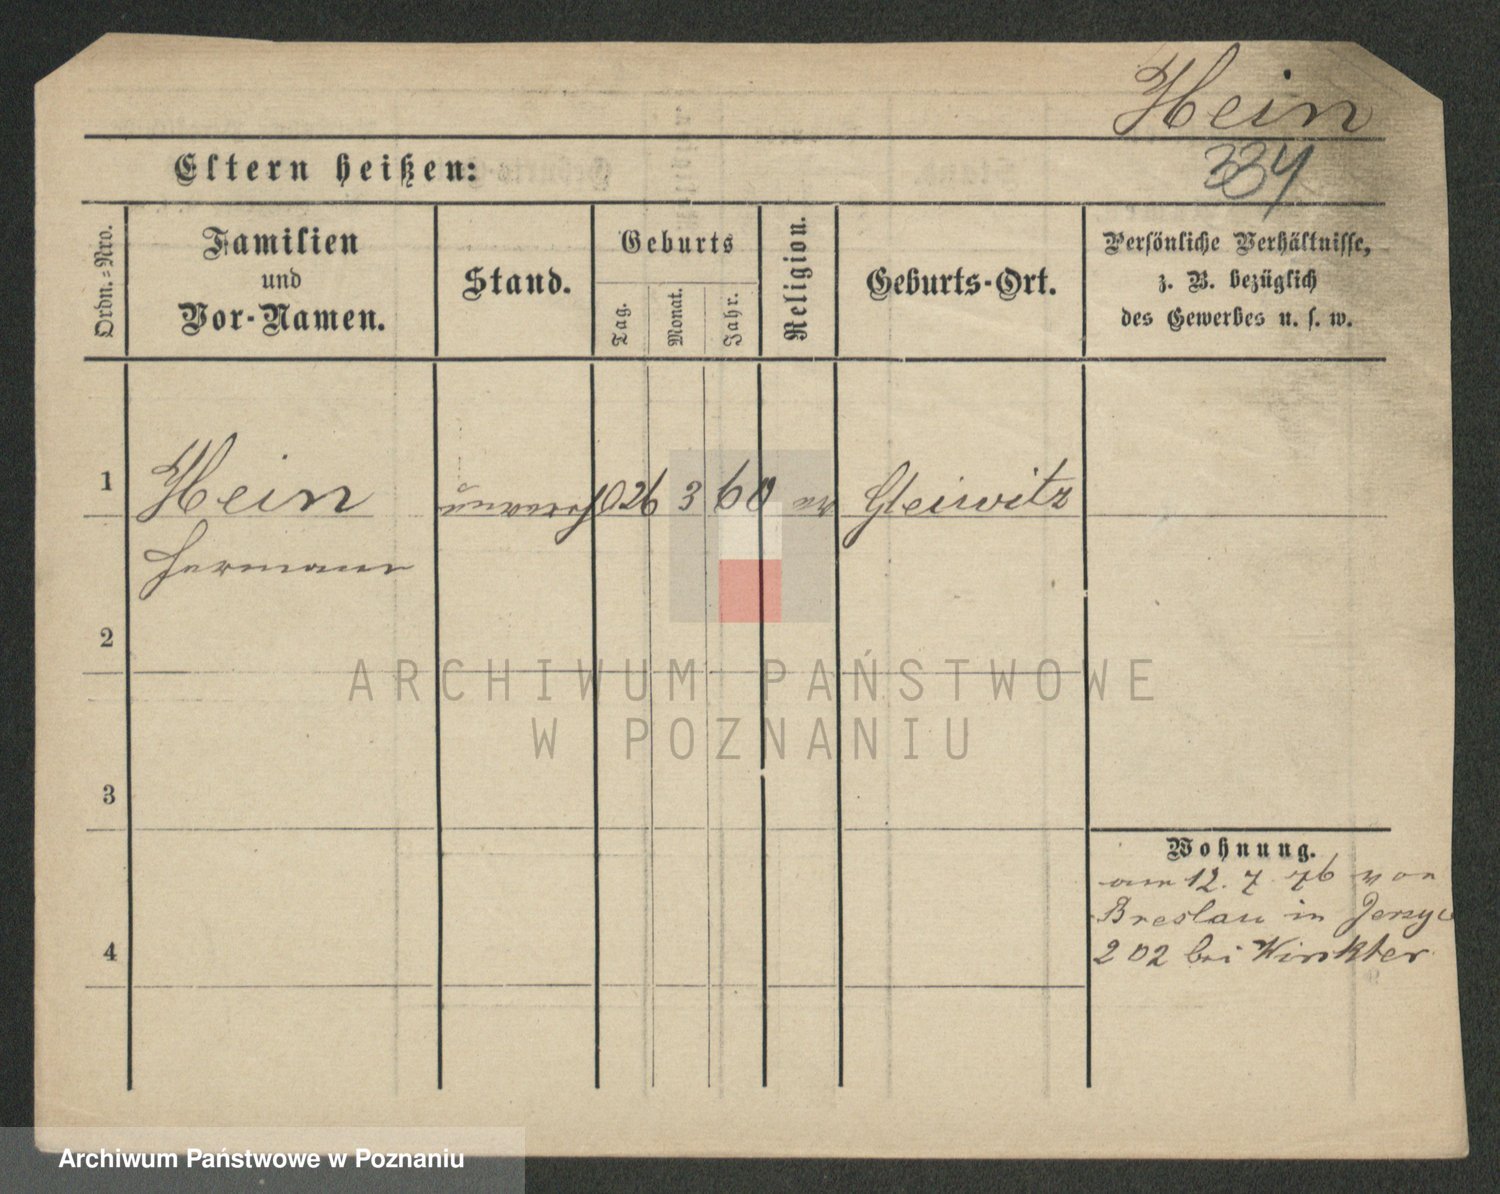 Hein
334
Eltern heißen:
Ordn.=Nro.
Familien
und
Vor-Namen.
Stand.
Geburts
Tag.
Monat.
Jahr.
Religion.
Geburts-Ort.
Persönliche Verhältnisse,
z. B. bezüglich
des Gewerbes u. s. w.
1 Hein 26 3 60 ev Gleiwitz
Hermann
2
3
4
Wohnung.
am 12. 7. 76 von
Breslau in Jerzyc
202 bei Winkter
ARCHIWUM PAŃSTWOWE
W POZNANIU
Archiwum Państwowe w Poznaniu